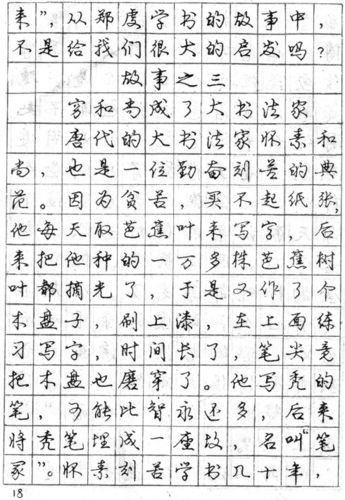 来”,从郑虔学书的故事中,
不是给我们很大的启发吗?
故事之三
穷和尚成了大书法家
唐代的大书法家怀素和
尚,也是一位勤奋刻苦的典
范。因为贫苦,买不起纸张,
他每天取芭蕉叶来写字,后
来把他种的一万多株芭蕉树
叶都摘光了,于是又作了个
木盘子,刷上漆,在上面练
习写字,时间长了,笔尖竟
把木盘也磨穿了。他写秃的
笔,可能比智永还多,后来
将秃笔埋成一座故,名叫“笔
冢”。怀素刻苦学书几十年,
18